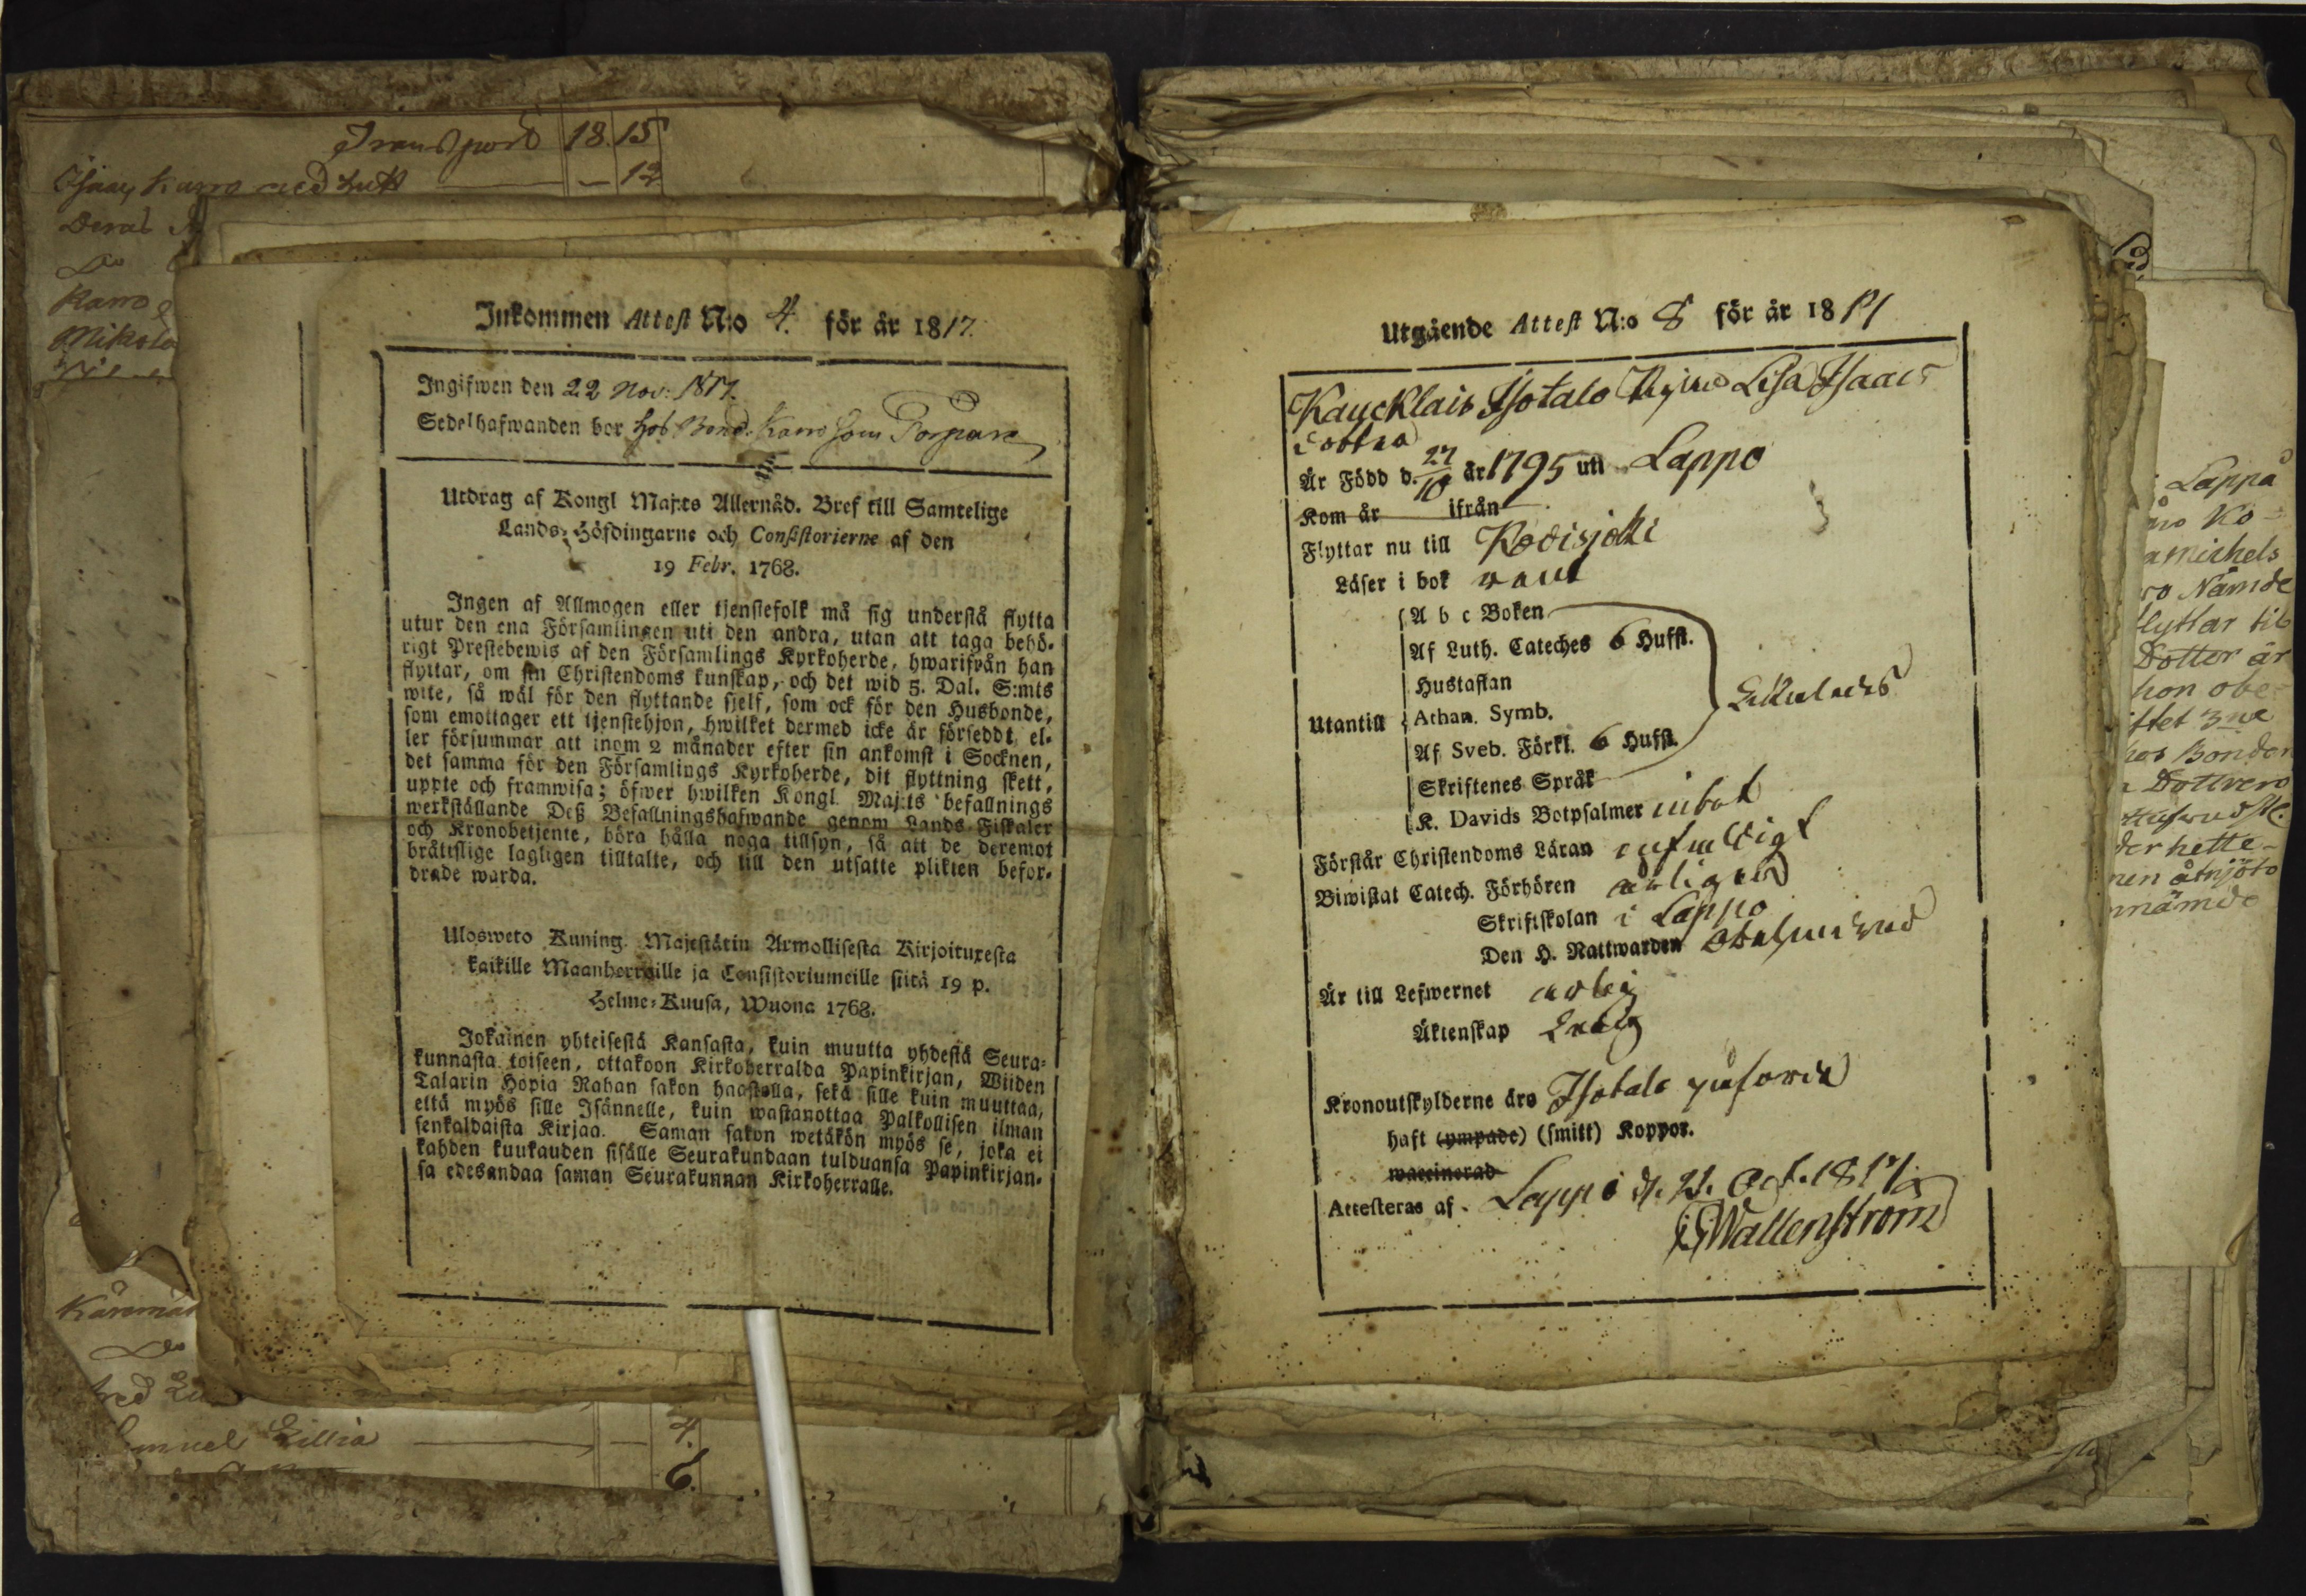 Transport 18. 15
— 12
Karro
Inkommen Attest N:o 4. för år 1817.
Ingifwen den 22 Nov: 1817.
Sedelhafwanden bor hos Bond. Karro som Torpare
Utdrag af Kongl Maj:ts Allernåd. Bref till Samtelige
Lands-Höfdingarne och Consistorierne af den
19 Febr. 1768.
Ingen af Allmogen eller tjenstefolk må sig understå flytta
utur den ena Församlingen uti den andra, utan att taga behö-
rigt Prestebewis af den Församlings Kyrkoherde, hwarifrån han
flyttar, om sin Christendoms kunskap, och det wid 5. Dal. S:mts
wite, så wäl för den flyttande sjelf, som ock för den Husbonde,
som emottager ett tjenstehjon, hwilket dermed icke är försedt, el-
ler försummar att inom 2 månader efter sin ankomst i Socknen,
det samma för den Församlings Kyrkoherde, dit flyttning skett,
uppte och framwisa; öfwer hwilken Kongl. Maj:ts befallnings
werkställande Deß Befallningshafwande genom Lands Fiskaler
och Kronobetjente, böra hålla noga tillsyn, så att de deremot
bråttslige lagligen tilltalte, och till den utsatte plikten befor-
drade warda.
Ulosweto Kuning. Majestätin Armollisesta Kirjoituxesta
kaikille Maanherraille ja Consistoriumeille siitä 19 p.
Helme-Kuusa, Wuona 1768.
Jokainen yhteisestä Kansasta, kuin muutta yhdestä Seura-
kunnasta toiseen, ottakoon Kirkoherralda Papinkirjan, Wiiden
Talarin Hopia Rahan sakon haastolla, sekä sille kuin muuttaa,
että myös sille Isännelle, kuin wastanottaa Palkollisen ilman
senkaldaista Kirjaa. Saman sakon wetäkön myös se, joka ei
kahden kuukauden sisälle Seurakundaan tulduansa Papinkirjan-
sa edesandaa saman Seurakunnan Kirkoherralle.
4.
6.
Utgående Attest N:o 8 för år 1817
Kaucklais Isotalo Lisa Isaacs
dotter
År Född d. 27/10 år 1795 uti Lappo
Kom år ifrån
Flyttar nu till Kodisjoki
Läser i bok
A b c Boken
Af Luth. Cateches 6 Huffst.
Hustaflan
Utantill Athan. Symb.
Af Sveb. Förkl. 6 Hufst.
Skriftenes Språk
K. Davids Botpsalmer i bok
Förstår Christendoms Läran enfaldigt
Biwistat Catech. Förhören årligen
Skriftskolan i Lappo
Den H. Nattwarden
Är till Lefwernet ärlig
Äktenskap Ledig
Kronoutskylderne äro Isotalo påförde
haft (ympade) (smitt) Koppor.
waccinerad
Attesteras af Lappo d. 21. Oct. 1817
Wallenström
Lappå
Ko-
michels
Nämde
flyttar til
Dotter är
hon obe-
hos Bonden